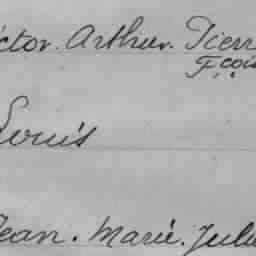 ictor. Arthur. Pierr
Fçois
Louis
Jean. Marie. Jules